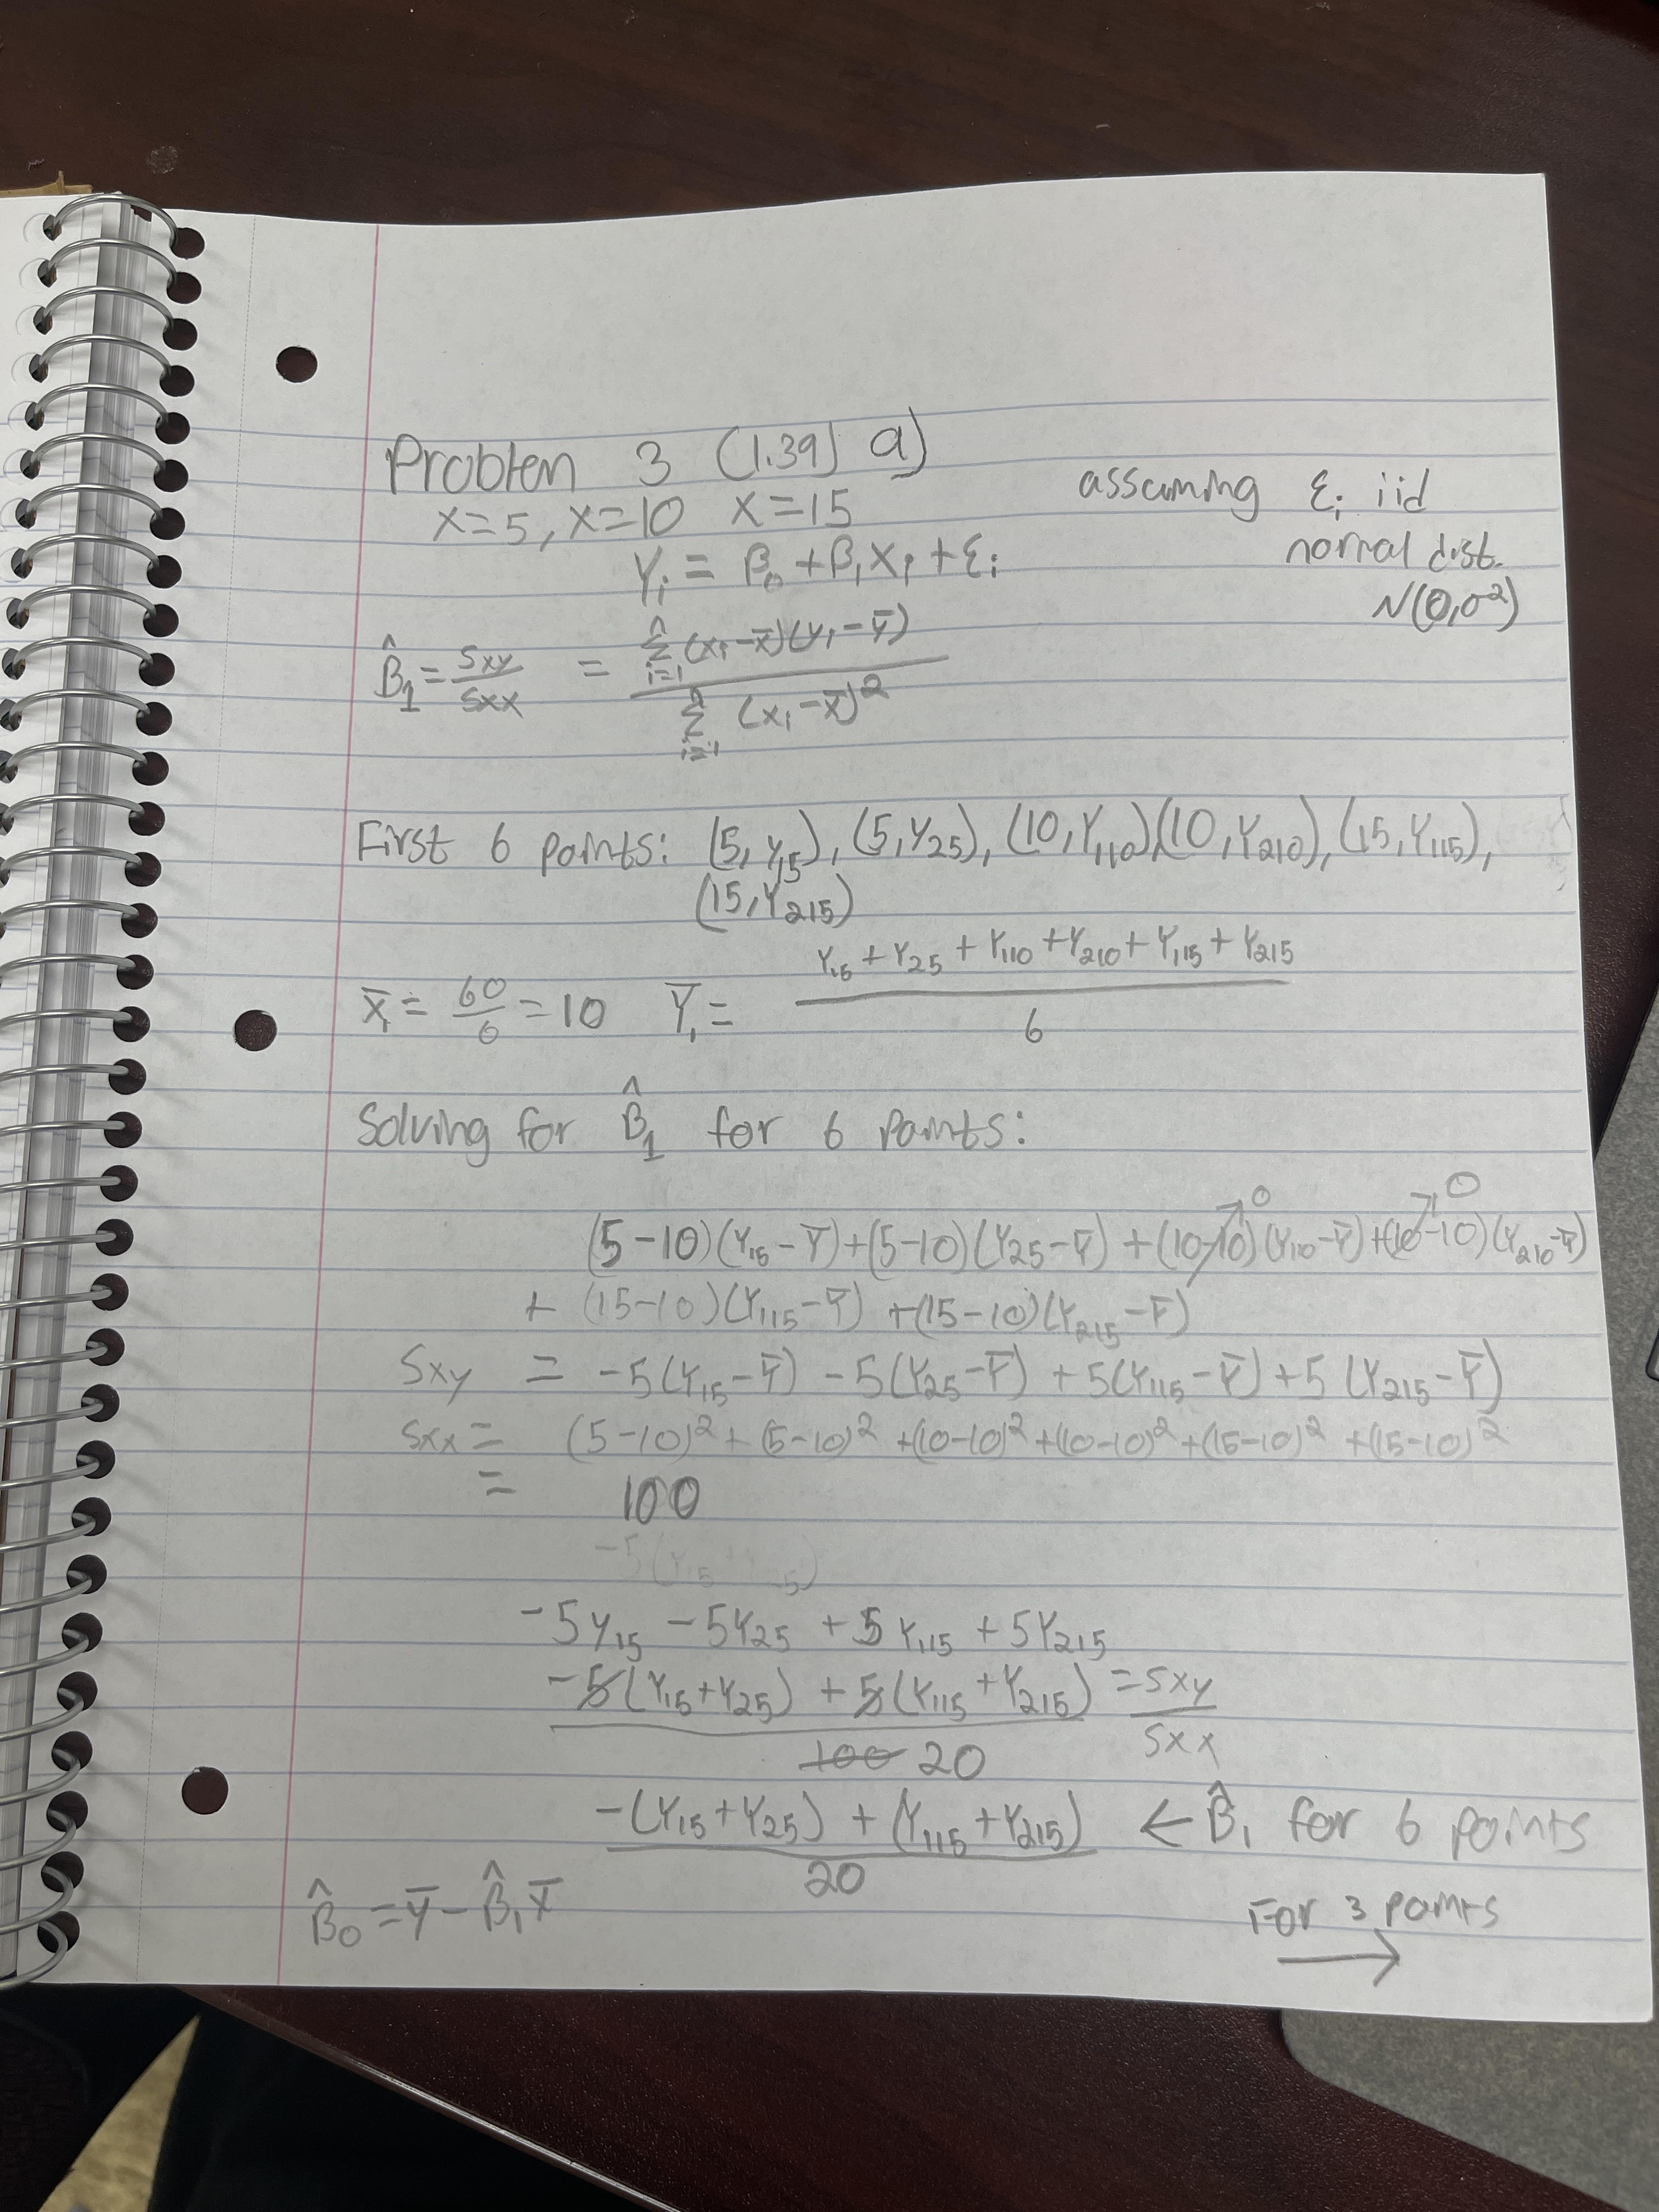 Problem 3 (1.39) a)
x=5, x=10 x=15
assuming εᵢ iid
normal dist.
N(0,σ²)
Yᵢ = β₀ + β₁Xᵢ + εᵢ
B̂₁ = Sxy/Sxx = Σⁿᵢ₌₁ (xᵢ - x̄)(yᵢ - ȳ) / Σⁿᵢ₌₁ (xᵢ - x̄)²
First 6 points: (5, Y₁₅), (5, Y₂₅), (10, Y₁₁₀)(10, Y₂₁₀), (15, Y₁₁₅),
(15, Y₂₁₅)
X̄₁ = 60/6 = 10 Ȳ₁ = (Y₁₅ + Y₂₅ + Y₁₁₀ + Y₂₁₀ + Y₁₁₅ + Y₂₁₅) / 6
Solving for B̂₁ for 6 points:
0 0
(5-10)(Y₁₅-Ȳ)+(5-10)(Y₂₅-Ȳ)+(10-10)(Y₁₁₀-Ȳ)+(10-10)(Y₂₁₀-Ȳ)
+ (15-10)(Y₁₁₅-Ȳ) +(15-10)(Y₂₁₅-Ȳ)
Sxy = -5(Y₁₅-Ȳ) -5(Y₂₅-Ȳ) +5(Y₁₁₅-Ȳ)+5(Y₂₁₅-Ȳ)
Sxx = (5-10)²+(5-10)²+(10-10)²+(10-10)²+(15-10)²+(15-10)²
= 100
-5Y₁₅ -5Y₂₅ +5Y₁₁₅ +5Y₂₁₅
-5(Y₁₅+Y₂₅) + 5(Y₁₁₅+Y₂₁₅) = Sxy
100 20 Sxx
-(Y₁₅+Y₂₅) + (Y₁₁₅+Y₂₁₅) ← B̂₁ for 6 points
20
B̂₀ = Ȳ - B̂₁X̄
For 3 points
→